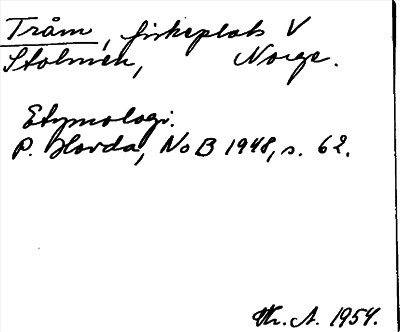 Tråm, fiskeplats V
Stolmen, Norge.
Etymologi.
P. Hovda, NoB 1948, s. 62.
Th. A. 1954.